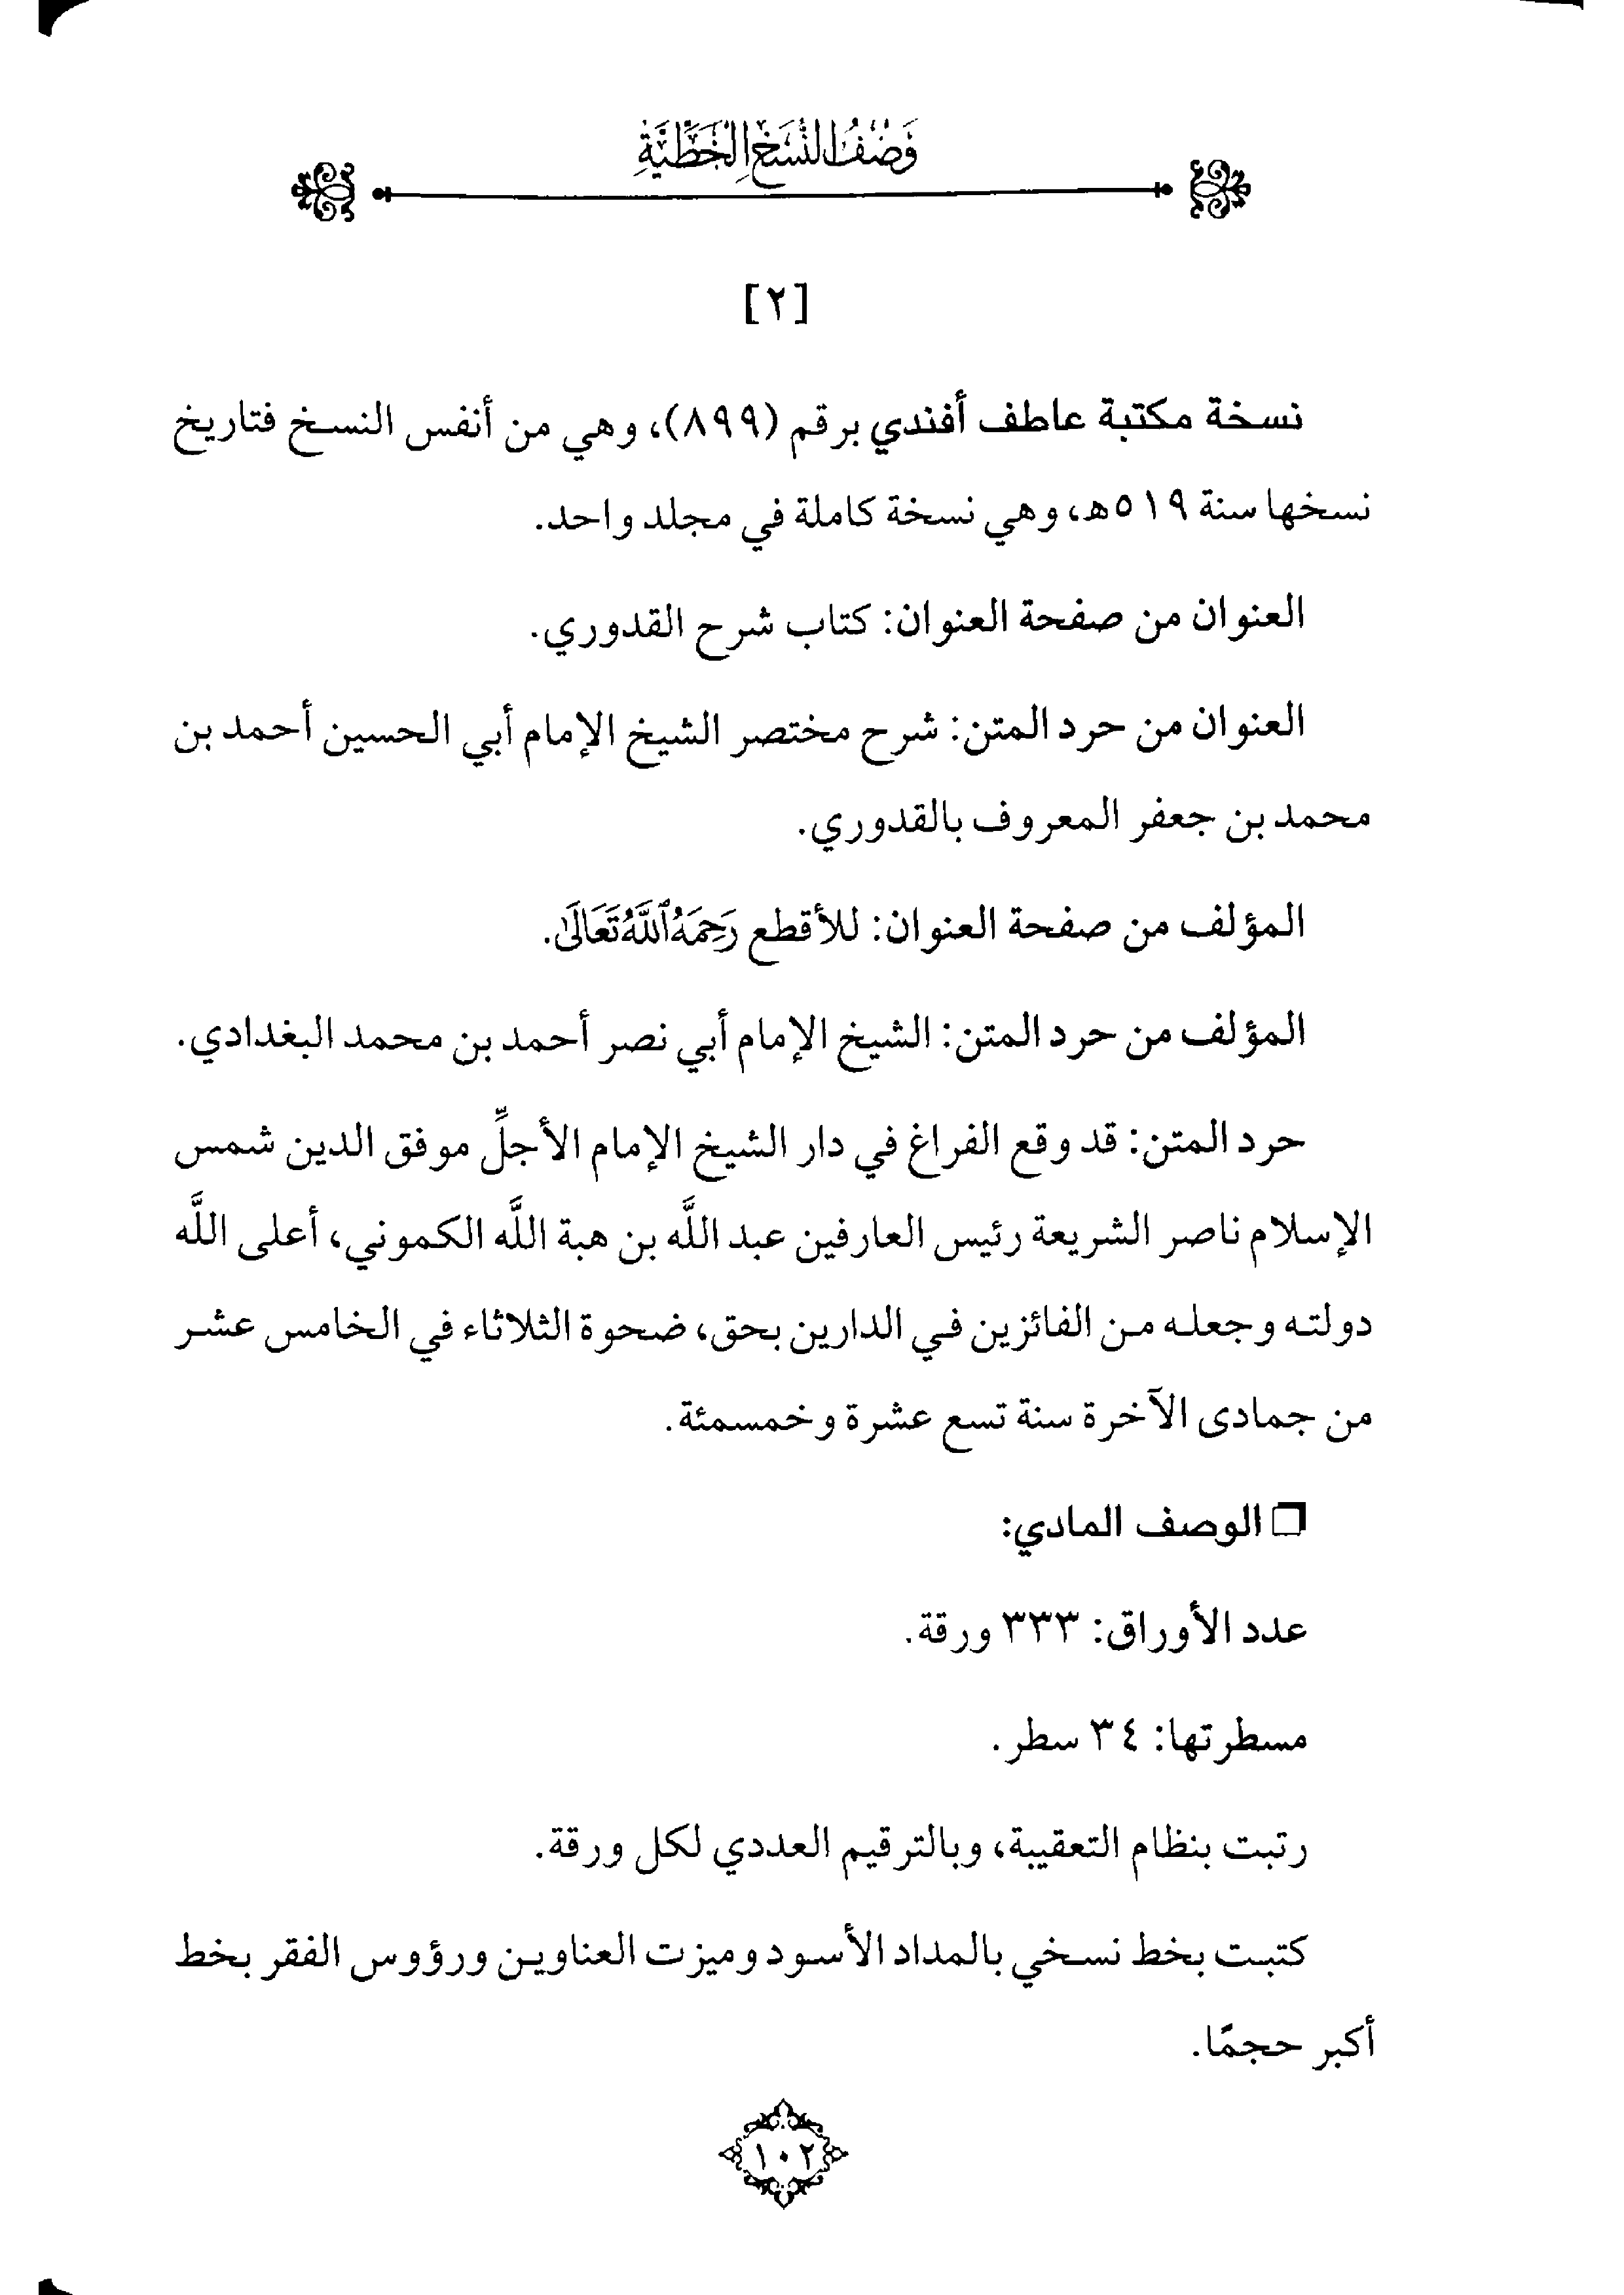 وَصْفُ النُّسَخِ الخَطِّيَّةِ
[٢]
نسخة مكتبة عاطف أفندي برقم (٨٩٩)، وهي من أنفس النسخ فتاريخ
نسخها سنة ٥١٩هـ، وهي نسخة كاملة في مجلد واحد.
العنوان من صفحة العنوان: كتاب شرح القدوري.
العنوان من حرد المتن: شرح مختصر الشيخ الإمام أبي الحسين أحمد بن
محمد بن جعفر المعروف بالقدوري.
المؤلف من صفحة العنوان: للأقطع رَحِمَهُ ٱللَّهُ تَعَالَىٰ.
المؤلف من حرد المتن: الشيخ الإمام أبي نصر أحمد بن محمد البغدادي.
حرد المتن: قد وقع الفراغ في دار الشيخ الإمام الأجلِّ موفق الدين شمس
الإسلام ناصر الشريعة رئيس العارفين عبد اللَّه بن هبة اللَّه الكموني، أعلى اللَّه
دولته وجعله من الفائزين في الدارين بحق، ضحوة الثلاثاء في الخامس عشر
من جمادى الآخرة سنة تسع عشرة وخمسمئة.
❒ الوصف المادي:
عدد الأوراق: ٣٣٣ ورقة.
مسطرتها: ٣٤ سطر.
رتبت بنظام التعقيبة، وبالترقيم العددي لكل ورقة.
كتبت بخط نسخي بالمداد الأسود وميزت العناوين ورؤوس الفقر بخط
أكبر حجمًا.
١٠٢